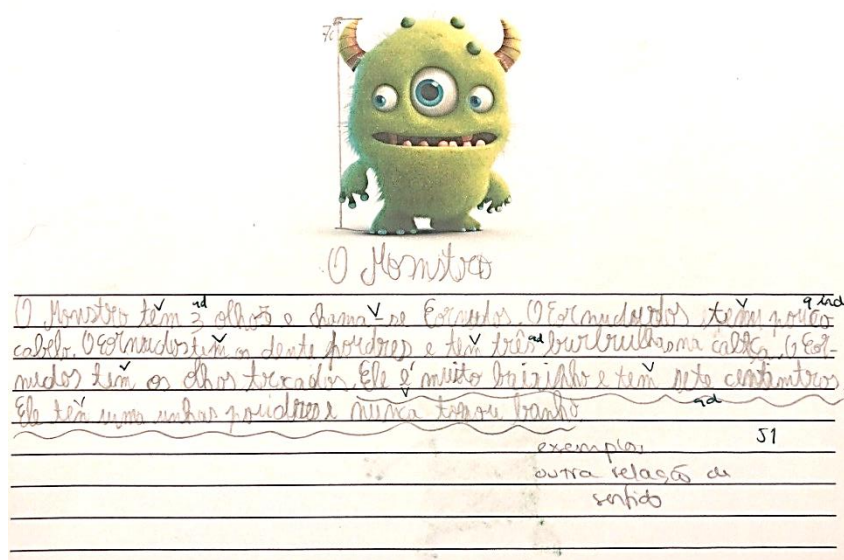 7c
O Monstro
O Monstro têm 3 olhos e chama-se Cornudos. O Cornudos têm pouco
cabelo. O Cornudos tem os dente pordres e tem três burbrulhas na cabeça. O Cor-
nudos tem os olhos trocados. Ele é muito baixinho e tem sete centimtros
Ele tên uma unhas poridres e nunca tomou banho
51
exemplo:
outra relação de
sentido